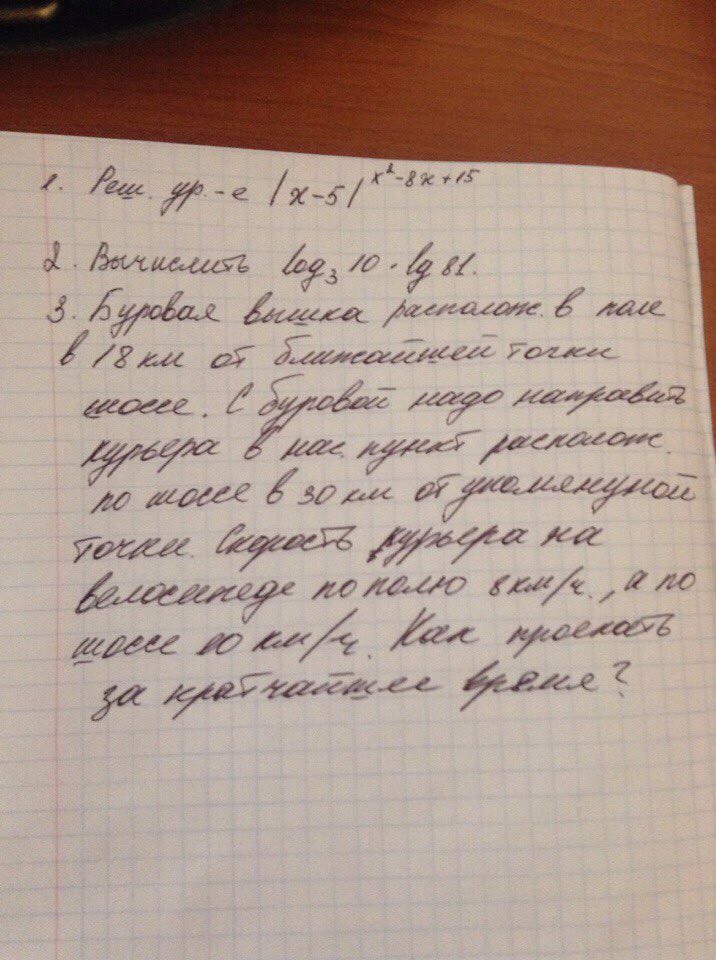 1. Реш. ур.-е |x-5|^x²-8x+15
2. Вычислить log₃10 · lg 81.
3. Буровая вышка располож. в поле
в 18 км от ближайшей точки
шоссе. С буровой надо направить
курьера в нас. пункт располож.
по шоссе в 30 км от упомянуной
точки. Скорость курьера на
велосипеде по полю 8 км/ч., а по
шоссе 10 км/ч. Как проехать
за кратчайшее время?